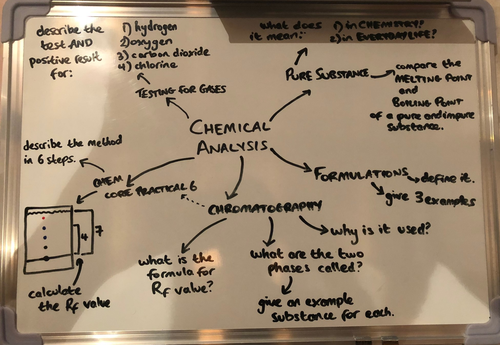 describe the
test AND
positive result
for:
1) hydrogen
2) oxygen
3) carbon dioxide
4) chlorine
TESTING FOR GASES
what does
it mean:
1) in CHEMISTRY?
2) in EVERYDAY LIFE?
PURE SUBSTANCE
compare the
MELTING POINT
and
BOILING POINT
of a pure and impure
substance.
CHEMICAL
ANALYSIS
describe the method
in 6 steps.
CHEM
CORE PRACTICAL 6
FORMULATIONS
define it.
give 3 examples
CHROMATOGRAPHY
why is it used?
4
7
calculate
the Rf value
what is the
formula for
Rf value?
what are the two
phases called?
give an example
substance for each.